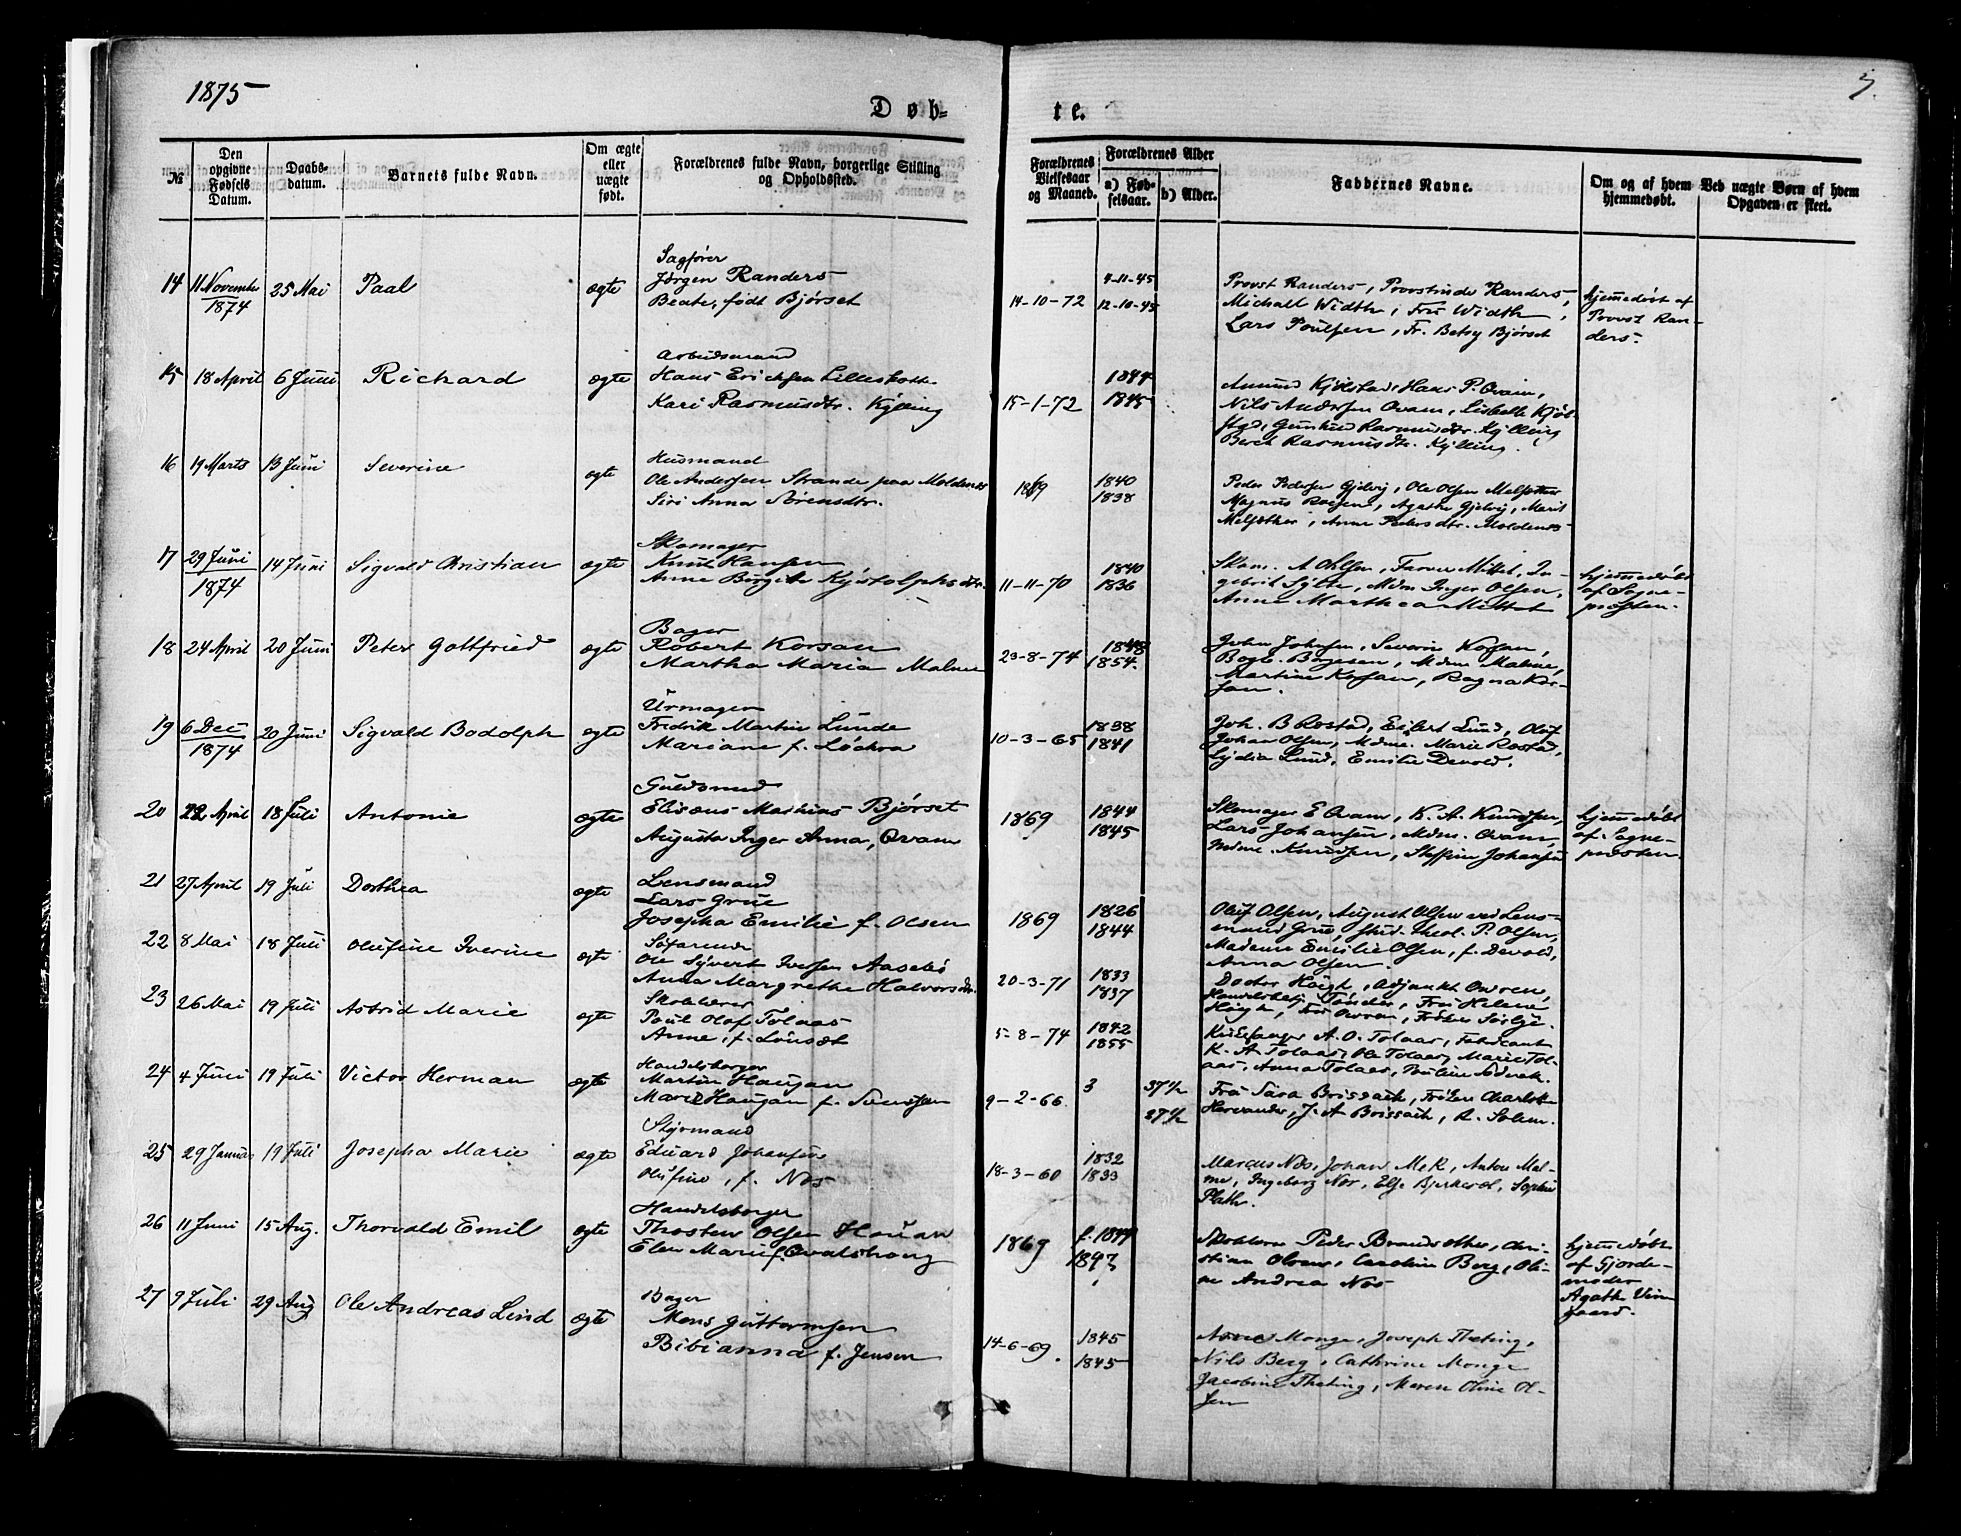 1875
3.
Døb=
te.
№
Den opgivne Fødsels Datum.
Daabs-datum.
Barnets fulde Navn.
Om ægte eller uægte født.
Forældrenes fulde Navn, borgerlige Stilling og Opholdssted.
Forældrenes Vielsesaar og Maaned.
Forældrenes Alder
a) Fødselsaar.
b) Alder.
Faddernes Navne.
Om og af hvem hjemmedøbt.
Ved uægte Børn af hvem Opgaven er skeet.
14 11 November 1874 25 Mai Paal ægte
Sagfører
Jørgen Randers
Beate, født Bjørset
14-10-72
4-11-45
12-10-45
Provst Randers, Provstinde Randers,
Michael Width, Fru Width,
Lars Poulsen, Fr. Betsy Bjørset
hjemmedøbt af
Provst Ran-
ders.
15 18 April 6 Juni Richard ægte
Arbeidsmand
Hans Ericksen
Kari Rasmusdtr. Kylling
15-1-72
1844
1845
Amund Kjølstad, Hans P. Qvam,
Nils Andersen Qvam, Lisbeth Kjøl-
stad, Gunhild Rasmusdtr. Kylling
Beret Rasmusdtr. Kylling.
16 19 Marts 13 Juni Severine ægte
Husmand
Ole Andersen Strande paa Moldenæs
Siri Anna Sørensdtr.
1869
1840
1838
Peder Pedersen Gjelvig, Ole Olsen
Magnus Agathe Gjelvig, Marit
Anne Pedersdtr. Moldenæs
17 29 Juni 1874 14 Juni Sigvald Christian ægte
Skomager
Knud Hansen
Anne Birgithe Kystolphsdtr.
11-11-70
1840
1836
Skom. A. Ohlsen, Farver Mittet, In-
gebrit Sylte, Mdm Inger Olsen,
Anne Marthea Mittet
hjemmedøbt
af Sogne-
præsten.
18 24 April 20 Juni Peter Gottfried ægte
Bager
Robert Korsan
Martha Maria Malme
23-8-74
1848
1854.
John Johnsen, Severin Korsan,
Børgesen, Mdm Malme,
Martine Korsan, Ragna Kor-
san.
19 6 Dec 1874 20 Juni Sigvald Bodolph ægte
Urmager
Fredrik Martin Lunde
Mariane f. Lochra
10-3-65
1838
1841
Joh. B Røstad, Eilert Lund, Oluf
Johan Olsen, Mdme. Marie Røstad,
Lydia Lund, Emilie Devold.
20 22 April 18 Juli Antonie ægte
Guldsmed
Elisæus Mathias Bjørset
Augusta Inger Anna, Qvam
1869
1844
1845
Skomager E Qvam, K. A. Knudsen,
Lars Johansen, Mdm. Qvam,
Mdme. Knudsen, Steffine Johansen
hjemmedøbt
af Sogne-
præsten.
21 27 April 19 Juli Dorthea ægte
Lensmand
Lars Grüe
Josepha Emilie f. Olsen
1869
1826
1844
Oluf Olsen, August Olsen ved Lens-
mand Grüe, Stud. theol. P. Olsen,
Madame Emilie Olsen, f. Devold,
Anna Olsen.
22 8 Mai 18 Juli Olufine Iverine ægte
Søfarende
Ole Syvert Iversen Aasebø
Anna Margrethe Halvorsdtr.
20-3-71
1833
1837
Doctor Høigh, Adjunkt Owren,
Tønder, Fru Helene
Høigh, Fru Owren, Frøken
23 26 Mai 19 Juli Astrid Marie ægte
Skolelærer
Poul Olaf Tolaas
Anne, f. Lønset
5-8-74
1842
1855
Kirkesanger A. O. Tolaas, Fabrikant
K. A Tolaas, Ole Tolaas, Marie Tol-
aas, Anna Tolaas, Pauline
24 4 Juni 19 Juli Victor Herman ægte
Handelsborger
Martin Haugan
Marie Haugan f. Svendsen
9-2-66.
3
37½
27½
Fru Sara Brissach, Frøken Charlotte
Hernandes, J. A Brissach, R. Solem.
25 29 Januar 19 Juli Josepha Marie ægte
Styrmand
Eduard Johansen
Olufine, f. Næs
18-3-60
1832
1833
Marcus Næs, Johan Mek, Anton Mal-
me, Ingeborg Næs, Else Bjerkevol, Sophie
Plath.
26 11 Juni 15 Aug. Thorvald Emil ægte
Handelsborger
Thosten Olsen Hauan
Elen Marie f. Qvalshoug
1869
f. 1844
1847
Skolelærer Peder Brandsether, Chri-
stian Olsen, Caroline Berg, Oli-
ne Andrea Næs
hjemmedøbt
af Gjorde-
moder
Agathe Vin-
gaard.
27 9 Juli 29 Aug Ole Andreas Lind ægte
Bager
Mons Guttormsen
Bibianna f. Jensen
14-6-69.
1845
1845
Arne Monge, Joseph Theting,
Nils Berg, Cathrine Monge
Jacobine Theting, Maren Oline Ol-
sen